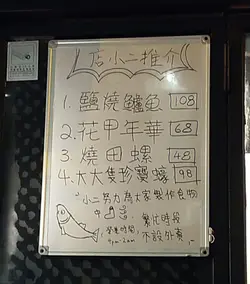 店小二推介
1. 鹽燒鱸魚 108
2. 花甲年華 68
3. 燒田螺 48
4. 大大隻珍寶蠔 98
小二努力為大家製作食物
中
繁忙時段
不設外賣
營業時間:
6pm-2am